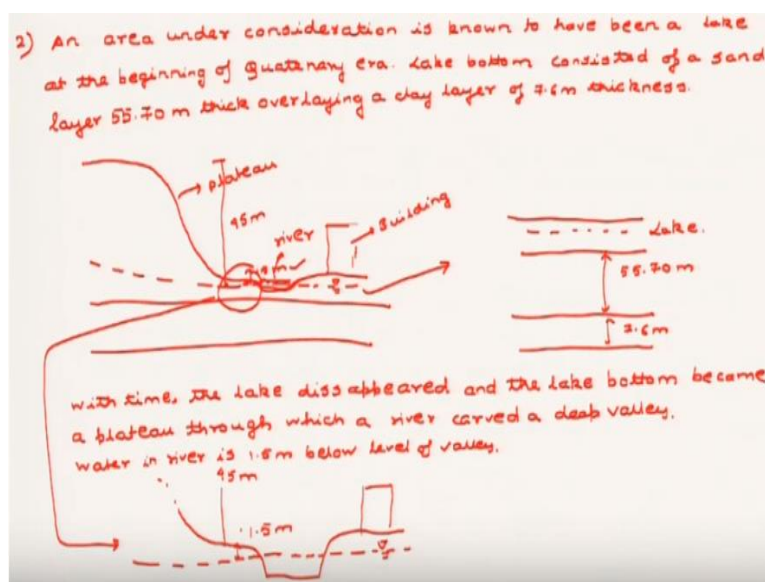 2) An area under consideration is known to have been a lake
at the beginning of Quatenary era. Lake bottom consisted of a sand
layer 55.70 m thick overlaying a clay layer of 7.6m thickness.
plateau
45m
river
Building
Lake.
55.70 m
7.6m
with time, the lake dissappeared and the lake bottom became
a plateau through which a river carved a deep valley.
Water in river is 1.5m below level of valley.
45m
1.5m